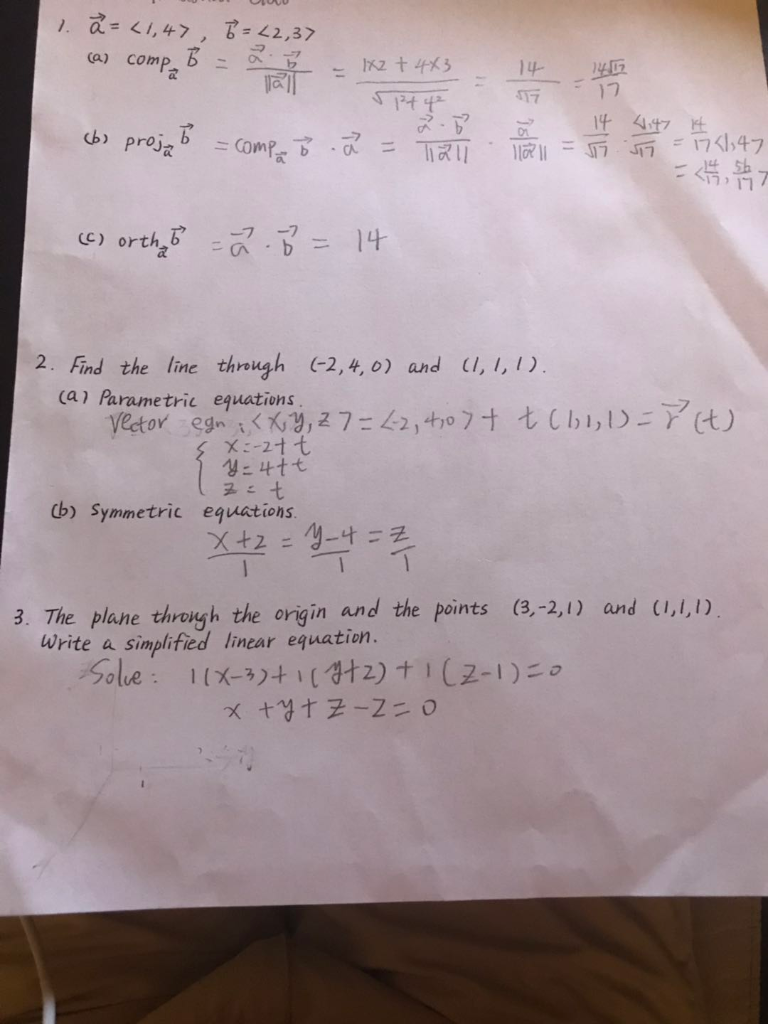 1. a⃗ = <1,4>, b⃗ = <2,3>
(a) comp_a⃗ b⃗ = a⃗ · b⃗ / ||a⃗|| = 1×2 + 4×3 / √1²+4² = 14/√17 = 14√17/17
(b) proj_a⃗ b⃗ = comp_a⃗ b⃗ · a⃗ = a⃗ · b⃗ / ||a⃗|| · a⃗/||a⃗|| = 14/√17 · <1,4>/√17 = 14/17 <1,4>
= <14/17, 56/17>
(c) orth_a⃗ b⃗ = a⃗ · b⃗ = 14
2. Find the line through (-2,4,0) and (1,1,1).
(a) Parametric equations.
Vector eqn: <x,y,z> = <-2,4,0> + t(1,1,1) = r⃗(t)
{ x=-2+t
y=4+t
z=t
(b) Symmetric equations.
x+2/1 = y-4/1 = z/1
3. The plane through the origin and the points (3,-2,1) and (1,1,1).
Write a simplified linear equation.
Solve: 1(x-3)+1(y+2)+1(z-1)=0
x+y+z-2=0